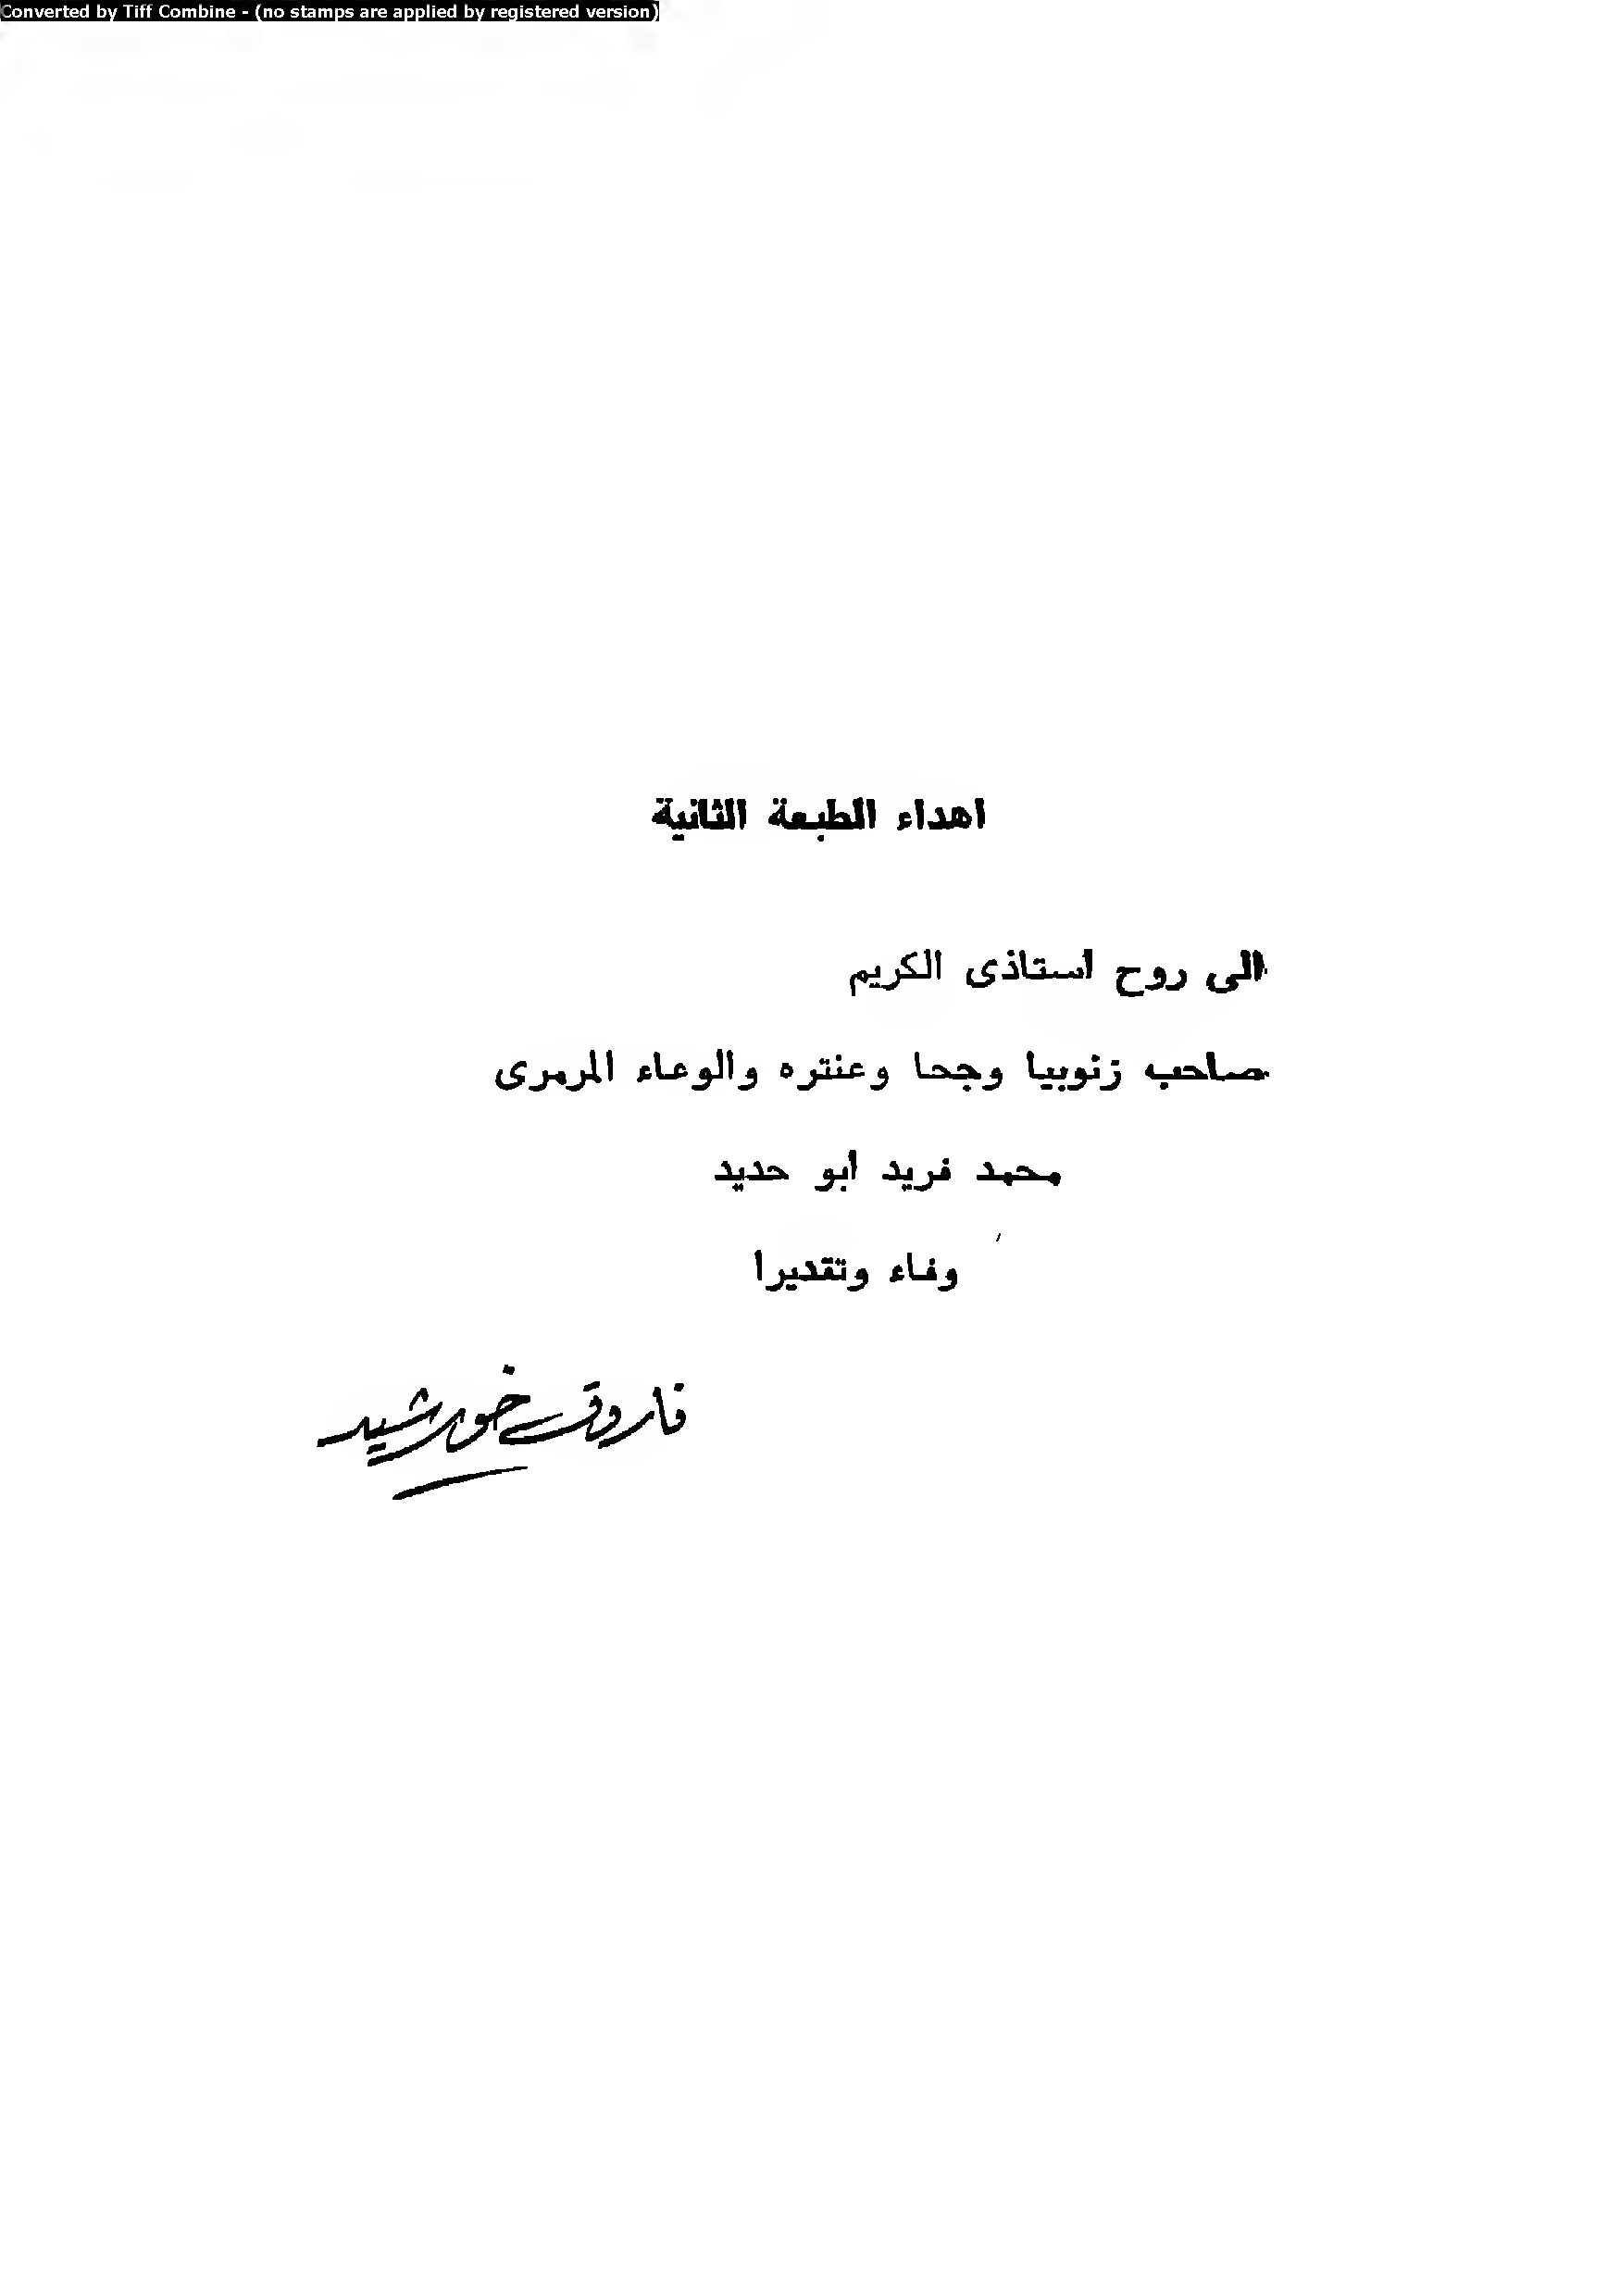 Converted by Tiff Combine - (no stamps are applied by registered version)
اهداء الطبعة الثانية
الى روح استاذى الكريم
صاحب زنوبيا وجحا وعنتره والوعاء المرمرى
محمد فريد ابو حديد
وفاء وتقديرا
فاروق خورشيد